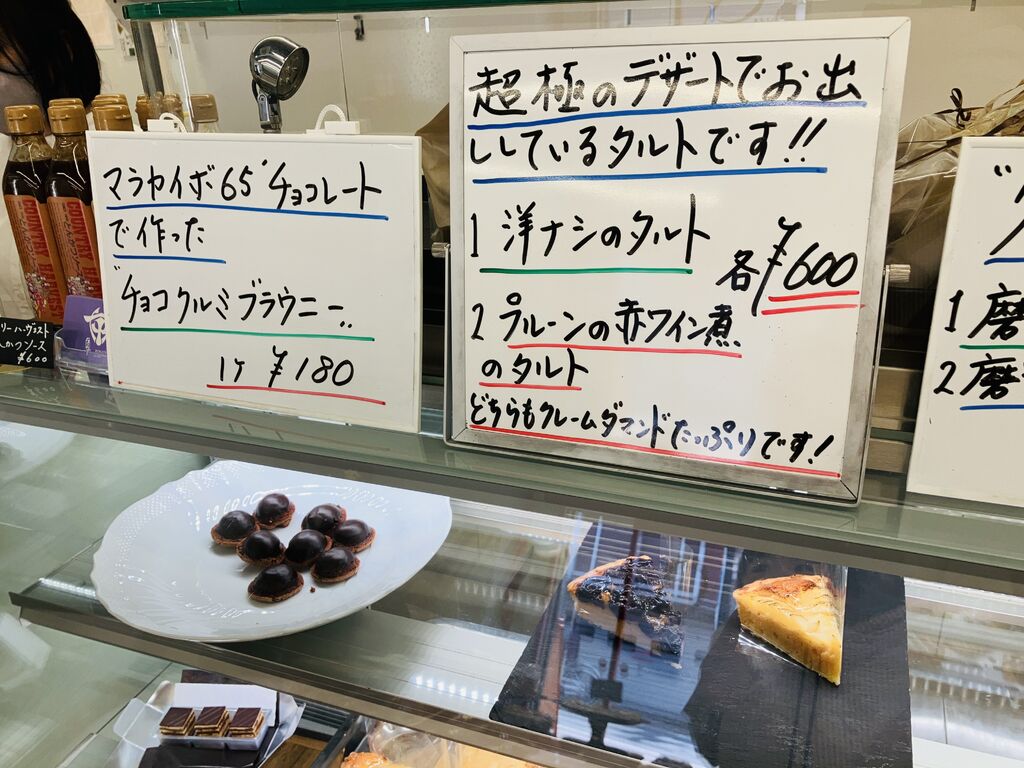 マラカイボ65゜チョコレート
で作った
"チョコクルミブラウニー"
1ケ ¥180
超極のデザートでお出
ししているタルトです!!
1 洋ナシのタルト
各¥600
2 プルーンの赤ワイン煮
のタルト
どちらもクレームダマンドたっぷりです!
1 磨
2 磨
リーハーヴェスト
んかつソース
¥600
COUNTRY HARVEST